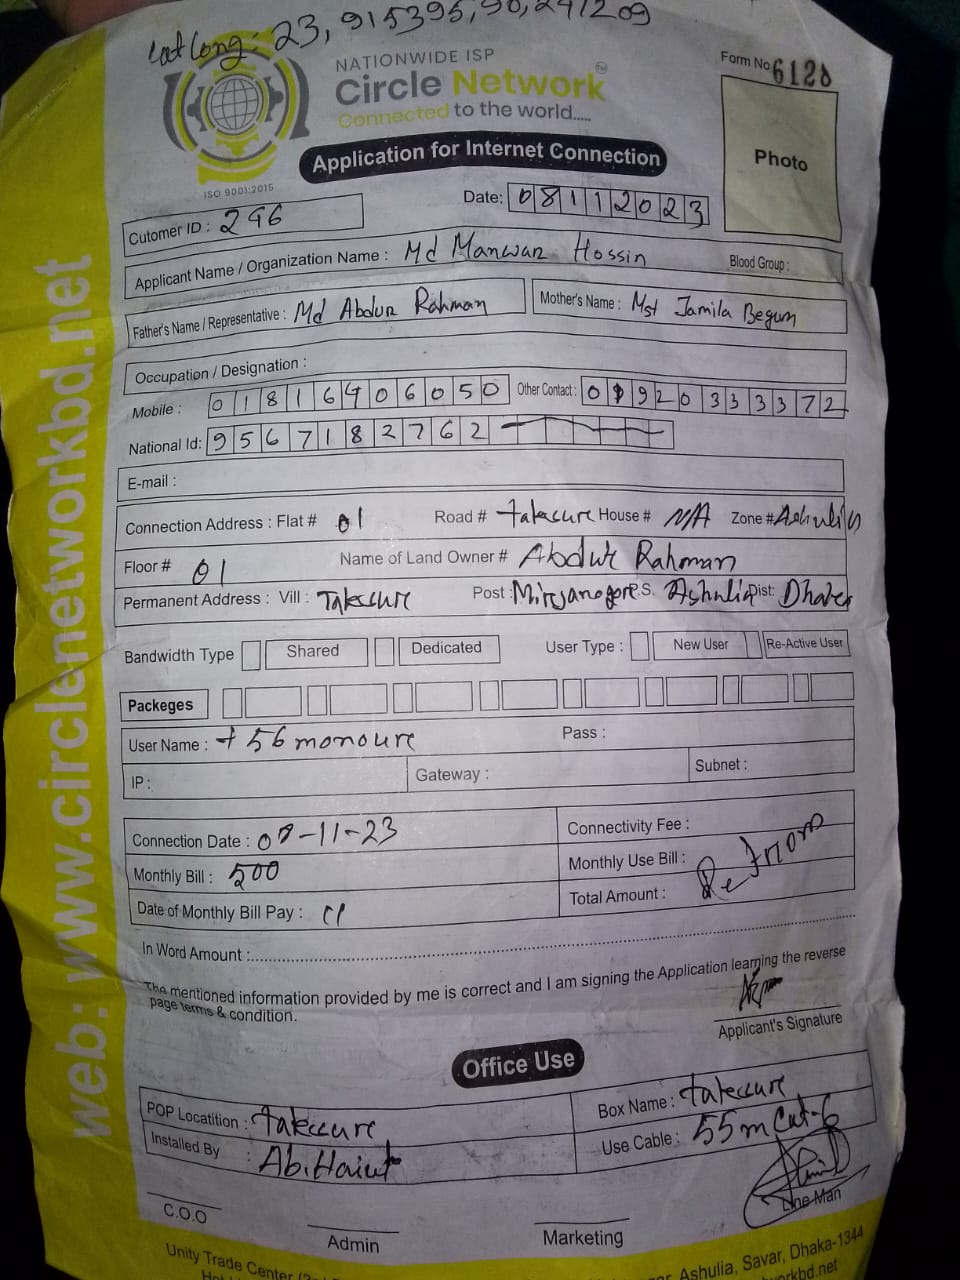 Lat Long: 23,915395,90,241209
NATIONWIDE ISP
Circle Network TM
Connected to the world.....
ISO 9001:2015
Form No 6128
Photo
Application for Internet Connection
Date: 08112023
Cutomer ID : 296
Applicant Name / Organization Name : Md Manwar Hossin Blood Group :
Father's Name / Representative : Md Abdur Rahman Mother's Name : Mst Jamila Begum
Occupation / Designation :
Mobile : 01816406050 Other Contact : 01920333372
National Id: 9567182762
E-mail :
Connection Address : Flat # 01 Road # takecure House # N/A Zone # Ashulia
Floor # 01 Name of Land Owner # Abdur Rahman
Permanent Address : Vill : Takecure Post : P.S. Ashulia Dist: Dhaka
Bandwidth Type Shared Dedicated User Type : New User Re-Active User
Packeges
User Name : t56monoure Pass :
IP : Gateway : Subnet :
Connection Date : 08-11-23 Connectivity Fee :
Monthly Bill : 500 Monthly Use Bill :
Date of Monthly Bill Pay : Total Amount :
In Word Amount :
The mentioned information provided by me is correct and I am signing the Application learning the reverse
page terms & condition.
Applicant's Signature
Office Use
POP Locatition : takecure Box Name : takecure
Installed By : Use Cable : 55m Cat-6
C.O.O Admin Marketing Line Man
Unity Trade Center Ashulia, Savar, Dhaka-1344
web: www.circlenetworkbd.net